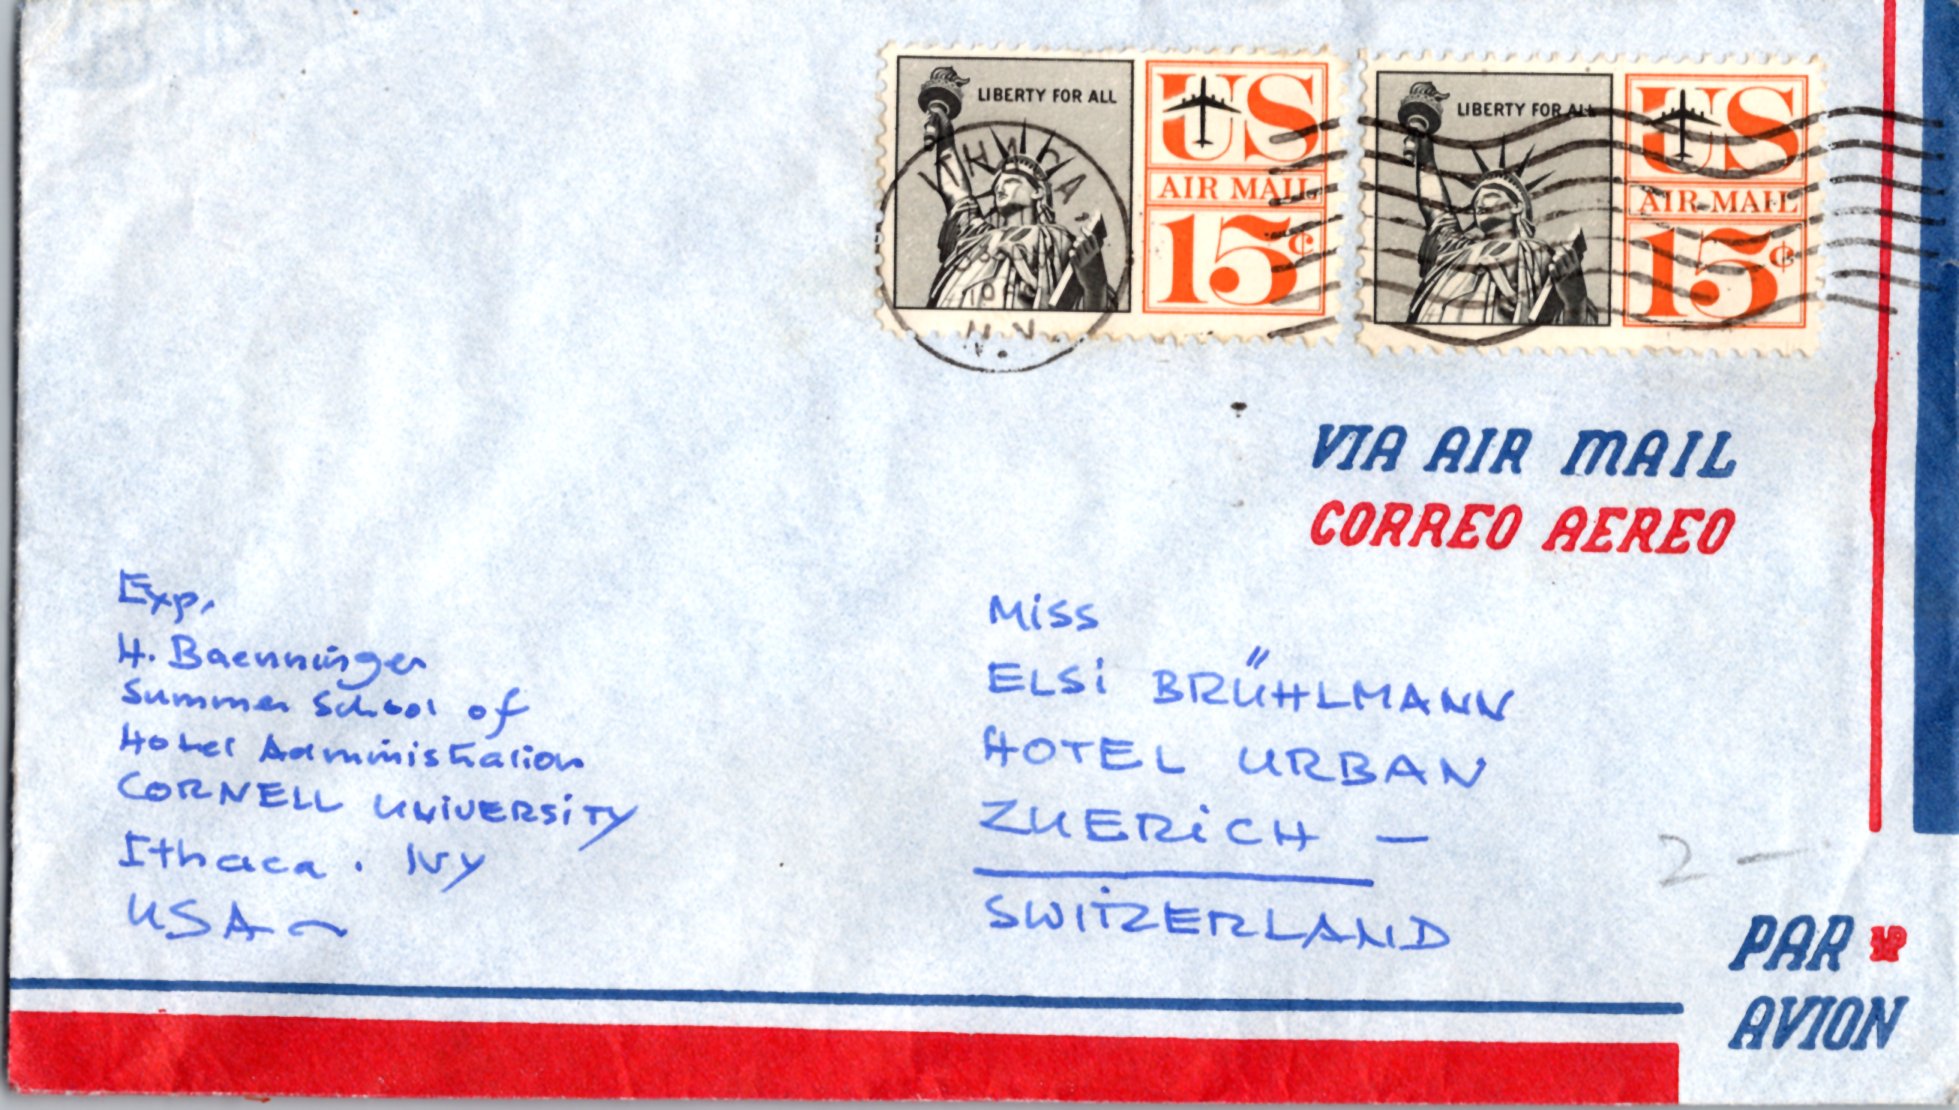 LIBERTY FOR ALL
US
AIR MAIL
15¢
LIBERTY FOR ALL
US
AIR MAIL
15¢
ITHACA
N.Y.
VIA AIR MAIL
CORREO AEREO
Exp.
H. Baenninger
Summer School of
Hotel Administration
CORNELL UNIVERSITY
Ithaca . NY
USA
Miss
ELSi BRÜHLMANN
HOTEL URBAN
ZUERiCH —
SWITZERLAND
2 —
PAR
AVION